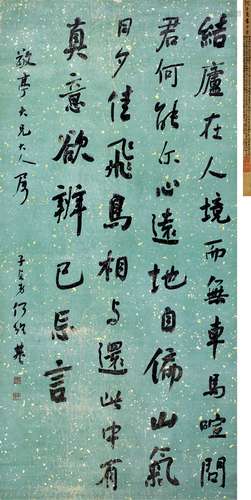 結廬在人境而無車馬喧問
君何能尔心遠地自偏山氣
日夕佳飛鳥相与還此中有
真意欲辨已忘言
敬亭大兄大人属
子貞弟何紹基